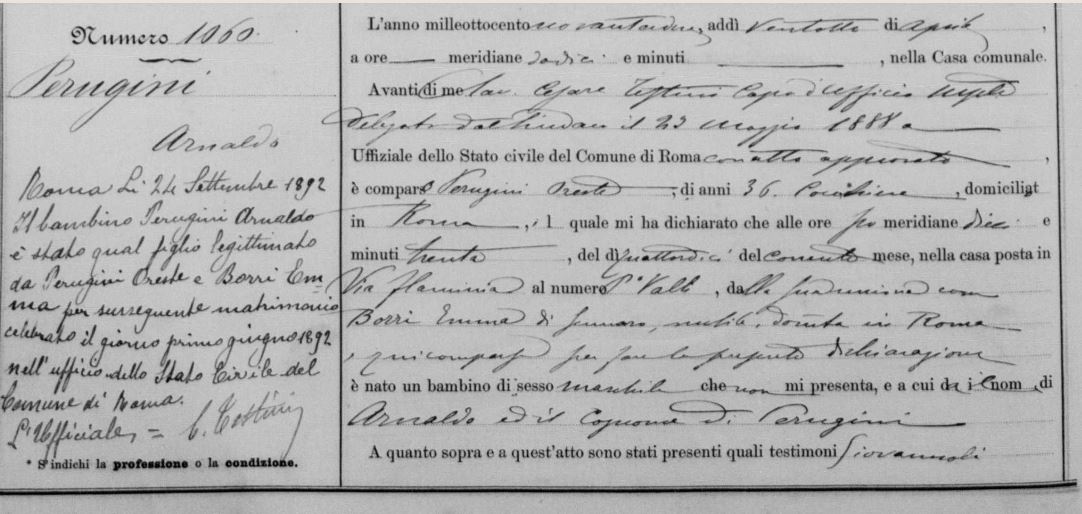 Numero 1060.
Perugini
Arnaldo
Roma Li 24 Settembre 1892
Il bambino Perugini Arnaldo
è stato qual figlio legittimato
da Perugini Oreste e Borri Em=
ma per susseguente matrimonio
celebrato il giorno primo giugno 1892
nell'ufficio dello Stato Civile del
Comune di Roma.
L'Ufficiale = C. Testini
* S'indichi la professione o la condizione.
L'anno milleottocento addì Ventotto di Aprile,
a ore meridiane dodici e minuti , nella Casa comunale.
Avanti di me Cav. Cesare Capo d'Ufficio
delegato dal Sindaco il 23 maggio 1888
Uffiziale dello Stato civile del Comune di Roma con atto approvato ,
è comparso Perugini Oreste , di anni 36. Cocchiere , domiciliat
in Roma , il quale mi ha dichiarato che alle ore po meridiane dieci e
minuti trenta , del dì quattordici del corrente mese, nella casa posta in
Via flaminia al numero , dalla sua unione con
Borri Emma di Gennaro, nubile, in Roma
, per fare la presente dichiarazione
è nato un bambino di sesso maschile che non mi presenta, e a cui da il nome di
Arnaldo ed il cognome di Perugini
A quanto sopra e a quest'atto sono stati presenti quali testimoni